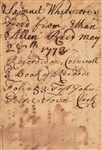 Samuel Whitcomb's
Deed from Ethan
Allen Recd may
28th 1778
Recorded in Cornwall
3 Book of Records
Folio 53
Town Clerk